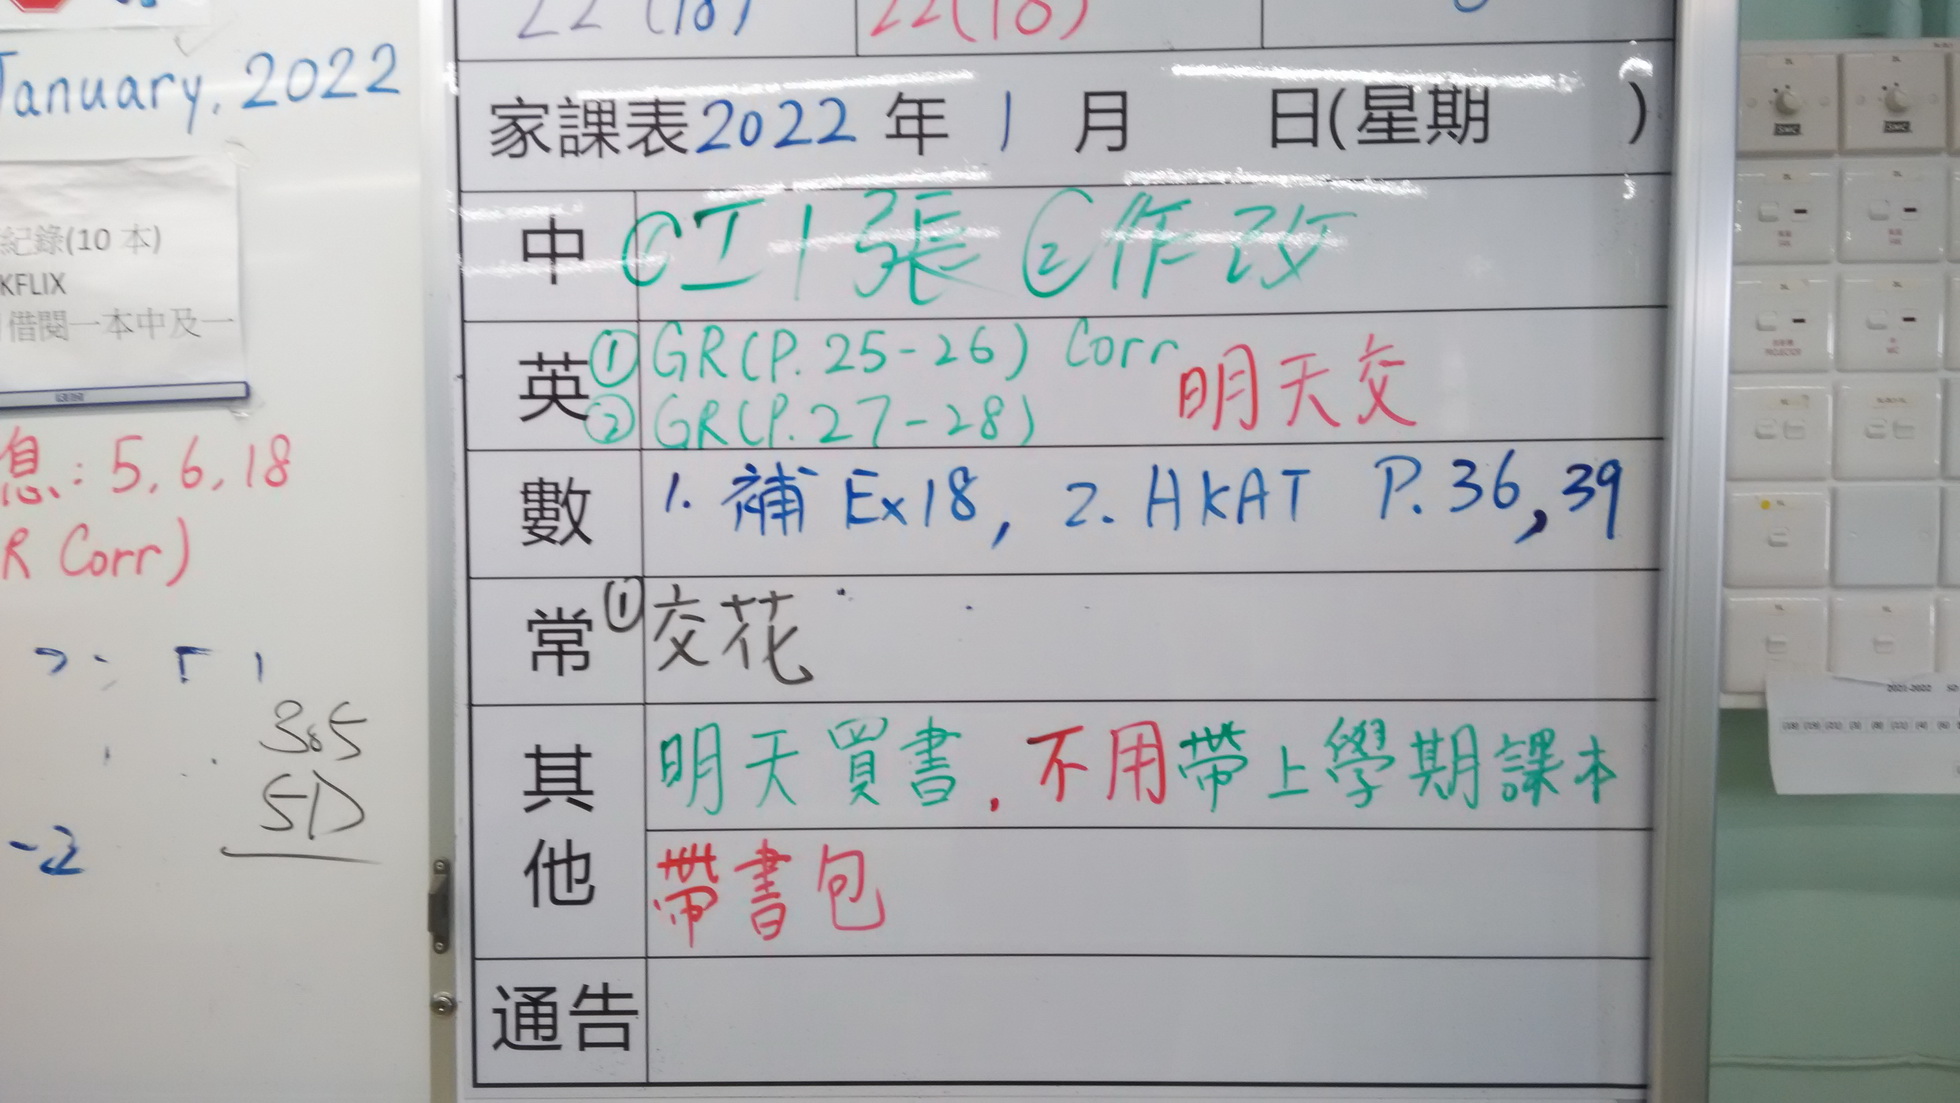 January, 2022
紀錄(10 本)
KFLIX
借閱一本中及一
息: 5, 6, 18
R Corr)
385
5D
22 (18) 22(18)
家課表2022 年 1 月 日(星期 )
中 ①工1張 ②作改
英 ① GR(P.25-26) Corr 明天交
② GR(P.27-28)
數 1. 補 Ex18, 2. HKAT P.36,39
常 ① 交花
其他 明天買書. 不用帶上學期課本
帶書包
通告
2021-2022